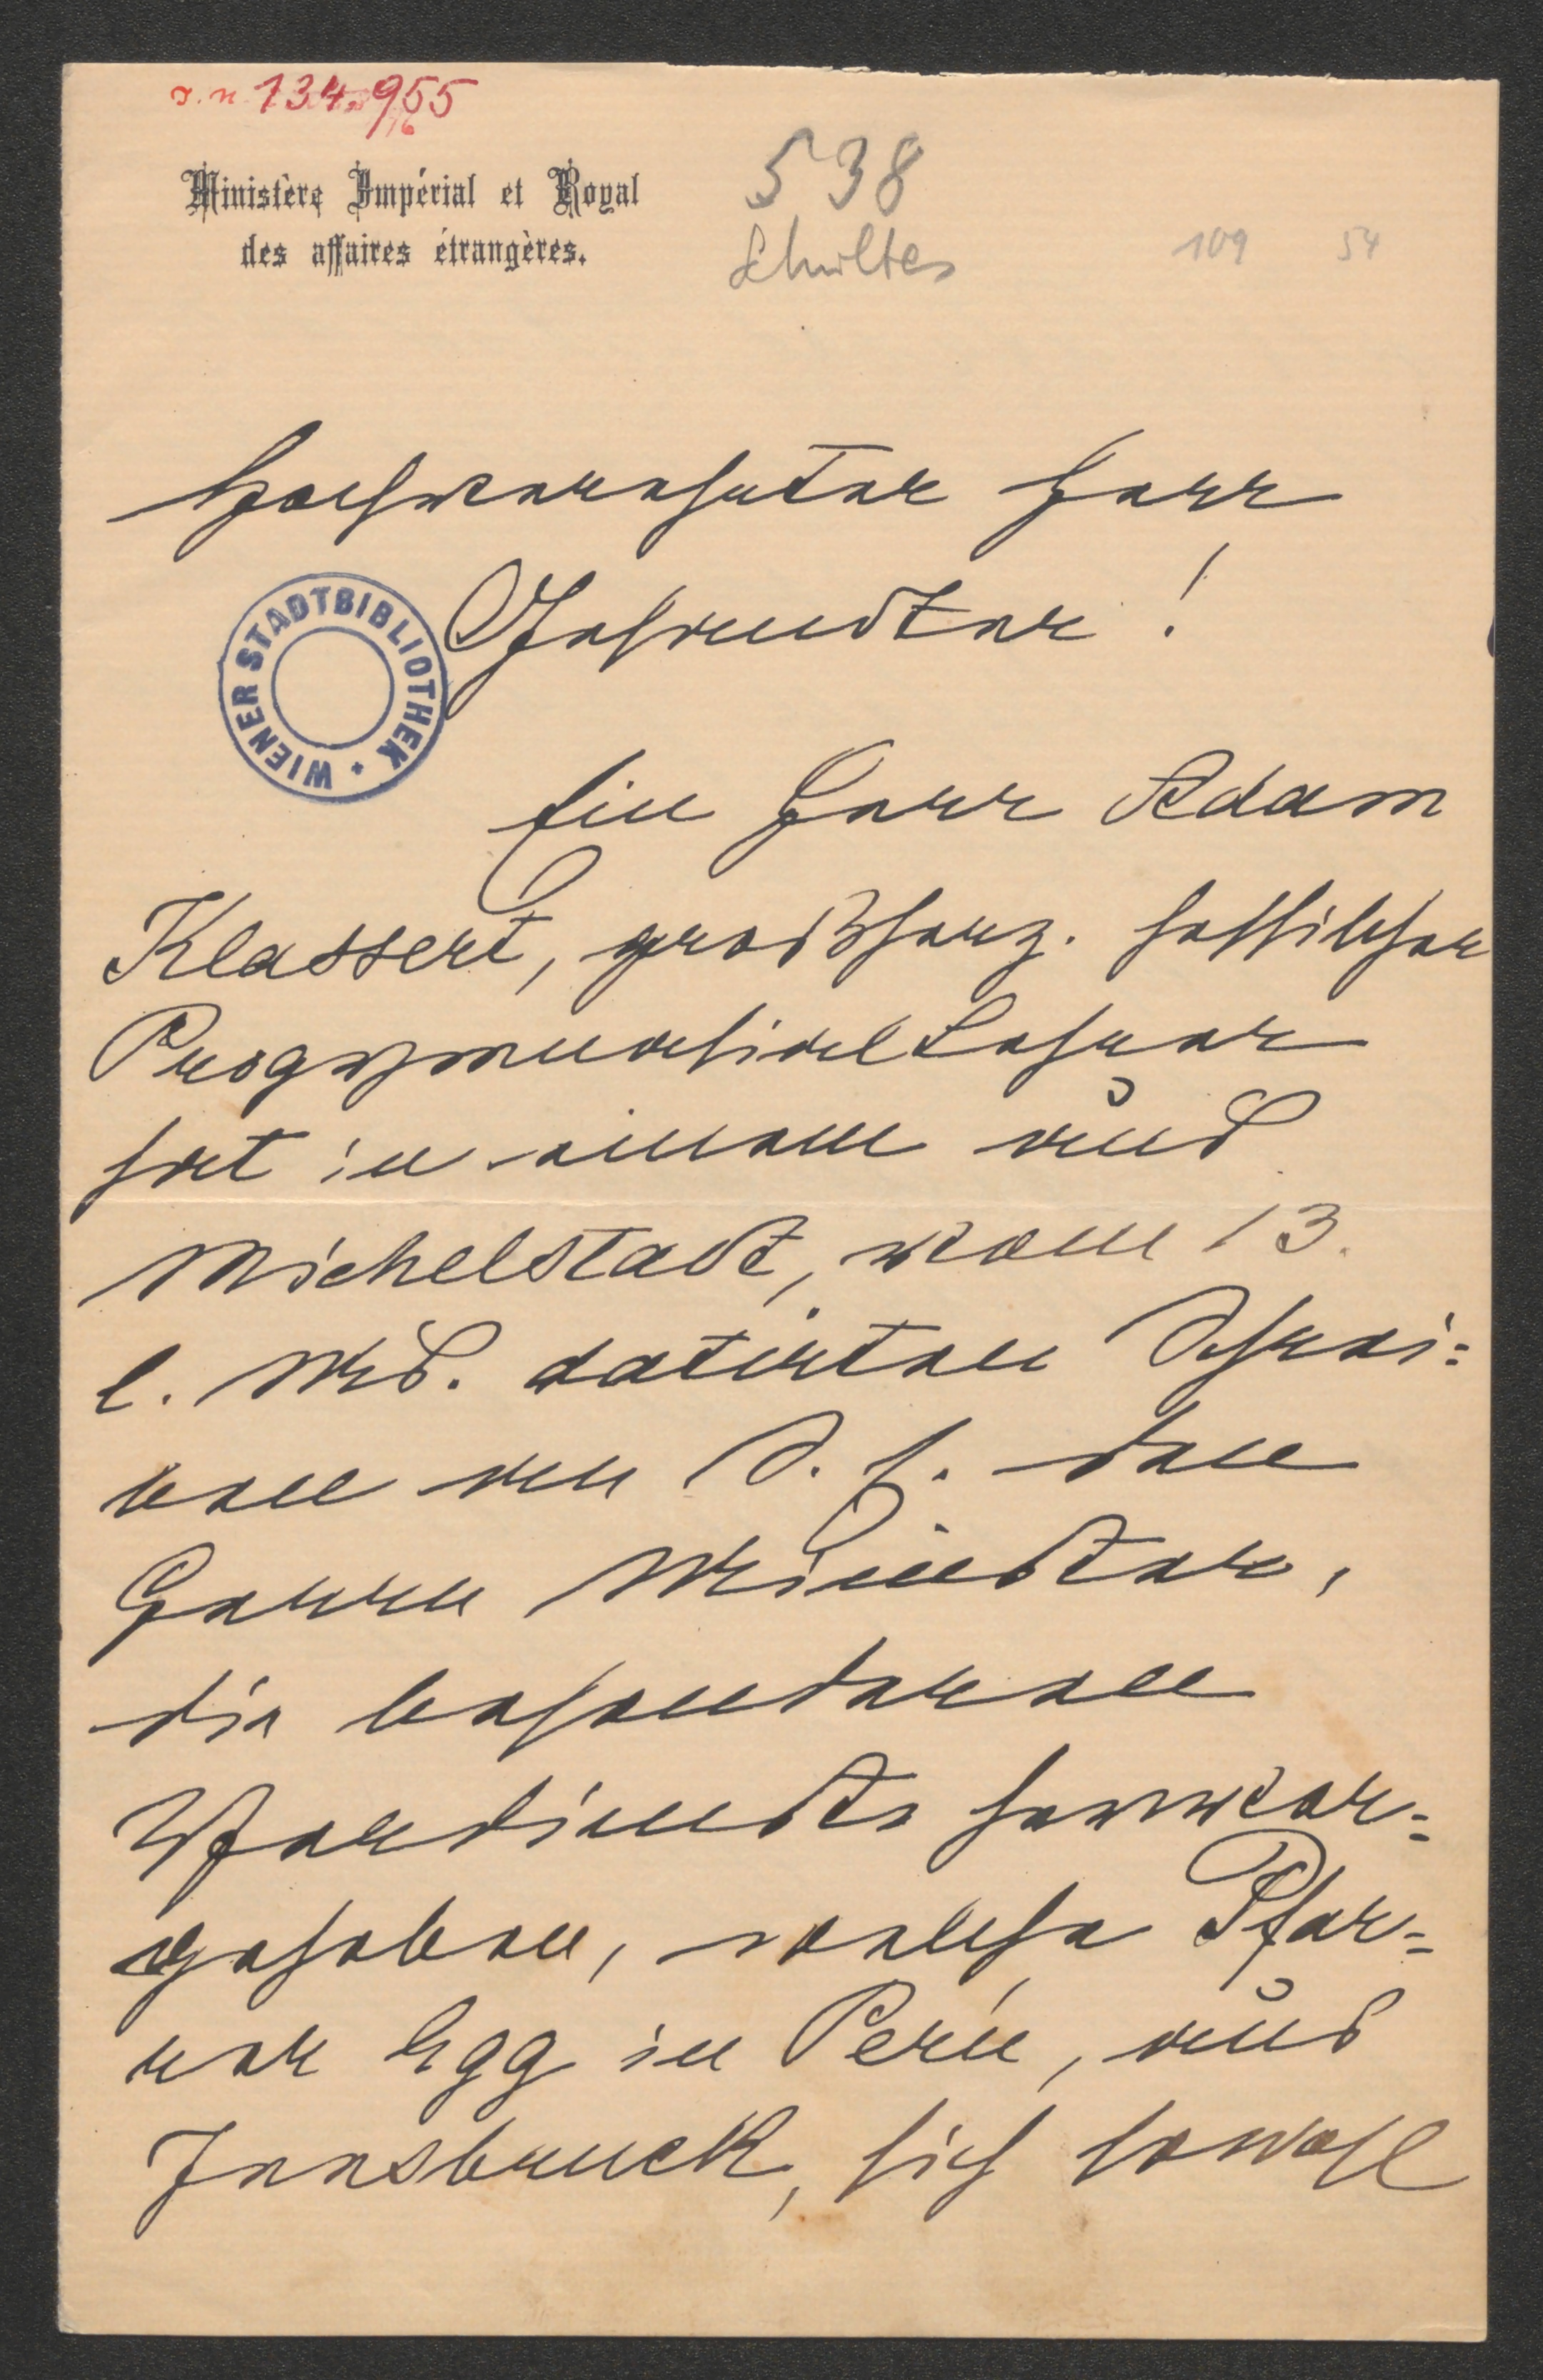 I.N. 134.955
Ministère Impérial et Royal
des affaires étrangères.
538
Schultes
109 54
Hochverehrter Herr
Sehmidter!
WIENER STADTBIBLIOTHEK
Ein Herr Adam
Klassert, großherz. hessischer
Progymnasiallehrer
hat in einem aus
Michelstadt, vom 13.
l. Mts. datirten Schrei=
ben an S. E. den
Herrn Minister,
die besonderen
Verdienste hervor=
gehoben, welche Pfar=
rer Egg in Perú, aus
Innsbruck, sich sowohl